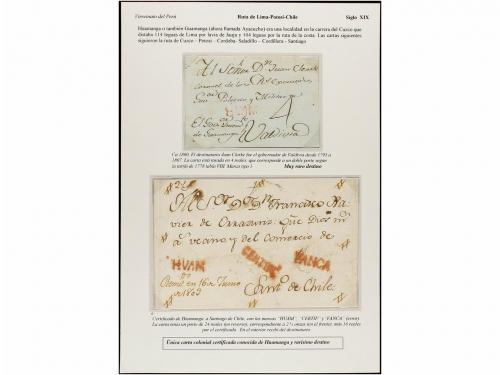 Virreinato del Perú
Ruta de Lima-Potosi-Chile
Siglo XIX
Huamanga o también Guamanga (ahora llamada Ayacucho) en una localidad en la carrera del Cuzco que
distaba 114 leguas de Lima por la via de Jauja y 104 leguas por la ruta de la costa. Las cartas siguientes
siguieron la ruta de Cuzco - Potosi - Cordoba- Saladillo - Cordillera - Santiago
Al Señor Dn Juan Clarke
Coronel de los Rs
Gor
4
Valdivia
Ca 1800. El destinatario Juan Clarke fue el gobernador de Valdivia desde 1795 a
1807. La carta está tasada en 4 reales, que corresponde a un doble porte según
la tarifa de 1778 tabla VIII. Marca tipo 1
Muy raro destino
A Sr. D. Dn Francisco Xa
vier de Errazuriz: que Dios
vecino y del comercio de
HUAM
CERTIF
FANCA
en 16 de Junio
1803
Santo de Chile
Certificado de Huamanga a Santiago de Chile, con las marcas "HUAM", "CERTIF" y "FANCA" (error)
La carta tenía un porte de 24 reales (en reverso), correspondiente a 2½ onzas (en el frente), más 16 reales
por el certificado. En el interior recibí del destinatario
Única carta colonial certificada conocida de Huamanga y rarísimo destino